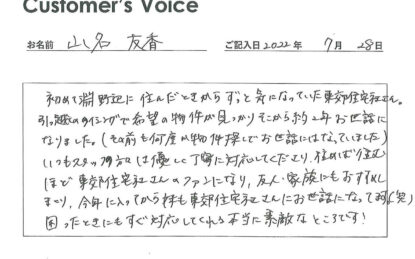 Customer's Voice
お名前 山名 友香 ご記入日 2022年 7月 28日
初めて淵野辺に住んだときからずっと気になっていた東郊住宅社さん。
引っ越しのタイミングで希望の物件が見つかりそこから約2年お世話に
なりました。(その前も何度か物件探しでお世話にはなっていました)
いつもスタッフの方は優しく丁寧に対応してくださり、住めば住む
ほど東郊住宅社さんのファンになり、友人・家族にもおすすめし
まくり、今年に入ってから妹も東郊住宅社さんにお世話になって(笑)
困ったときにもすぐ対応してくれる本当に素敵なところです!